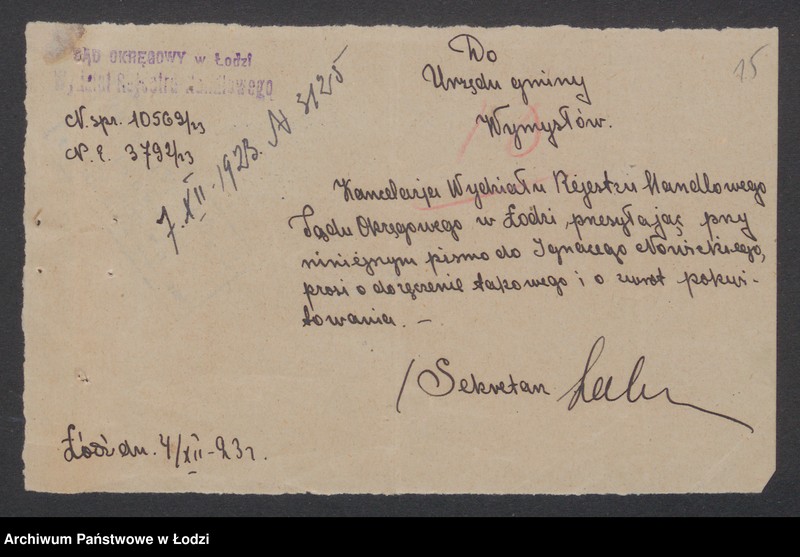 SĄD OKRĘGOWY w Łodzi
Wydział Rejestru Handlowego
N. spr. 10569/23
N. E. 3792/23
7.XII.1923. N 3125
Do
Urzędu gminy
Wymysłów.
15
Kancelarja Wydziału Rejestru Handlowego
Sądu Okręgowego w Łodzi, przesyłając przy
niniejszym pismo do Ignacego Nowickiego,
prosi o doręczenie takowego i o zwrot pokwi-
towania. –
/Sekretarz
Łódź dn. 4/XII-23 r.
Archiwum Państwowe w Łodzi